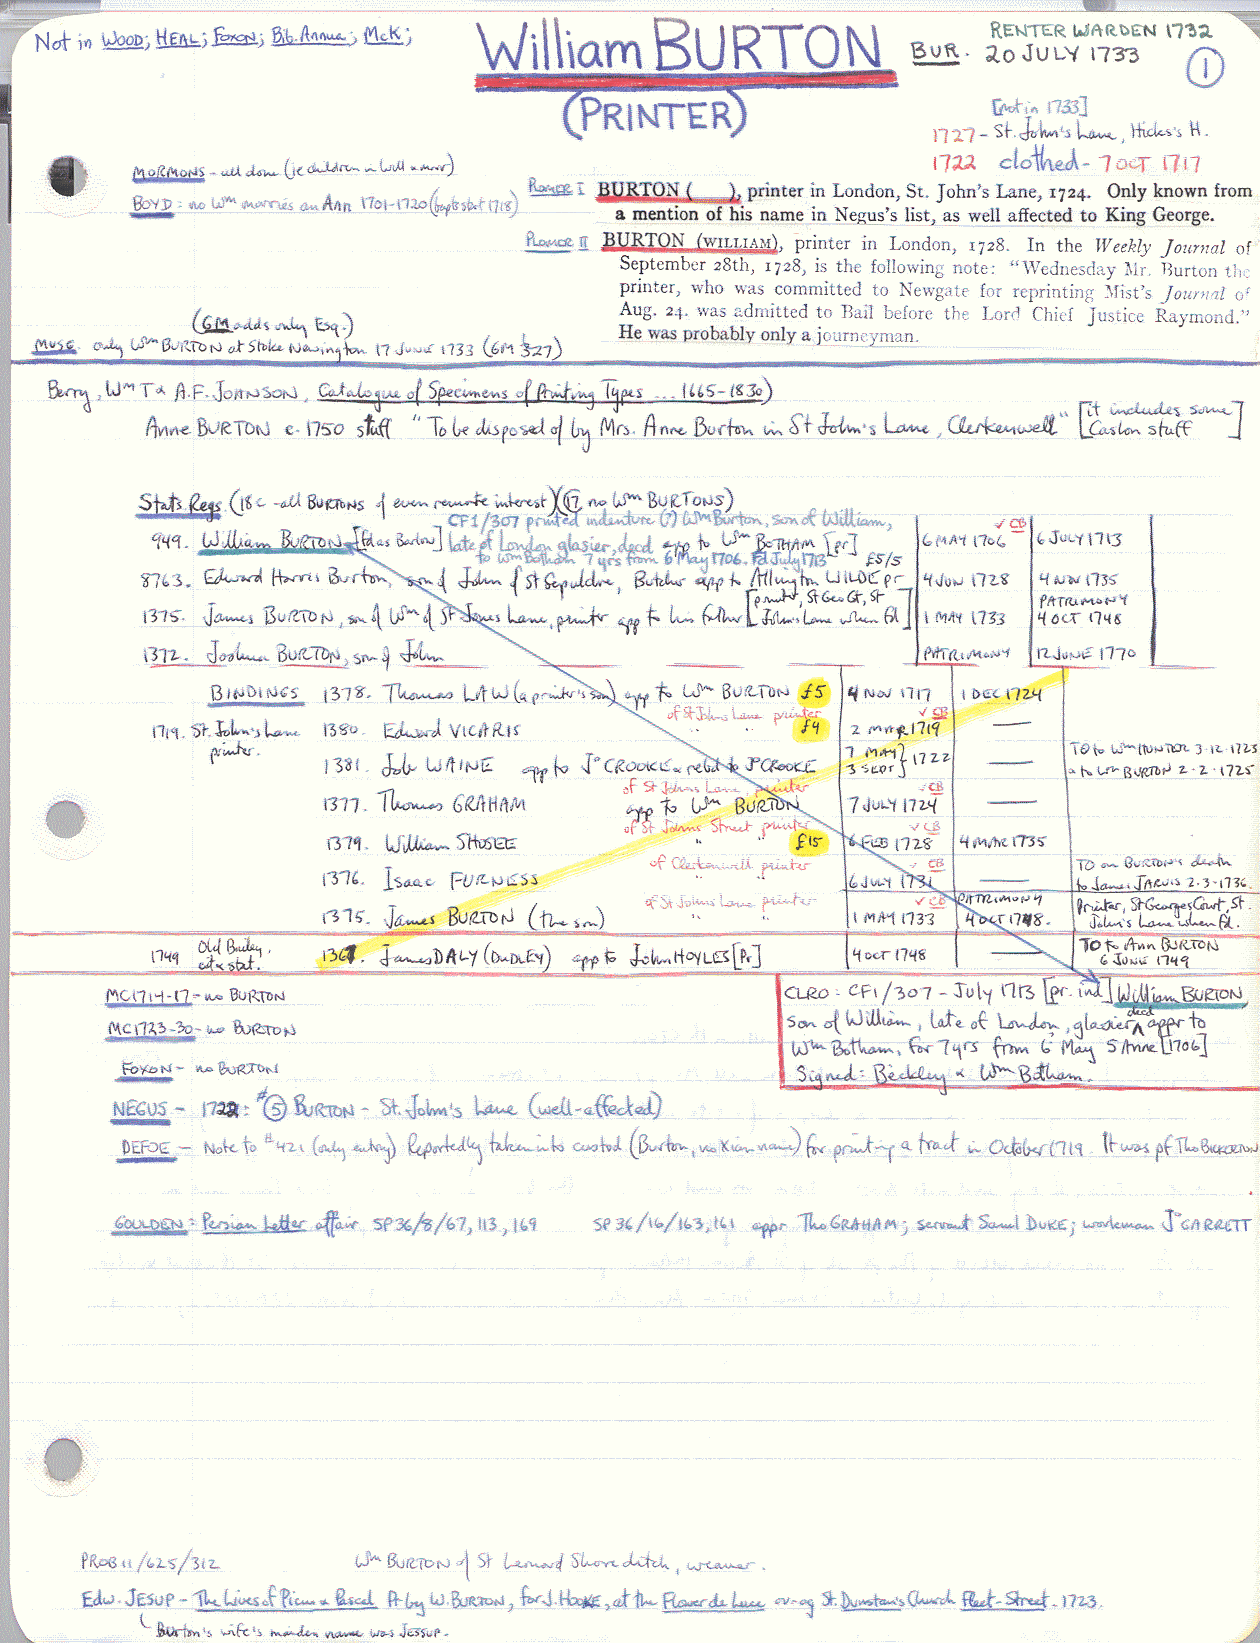 Not in WOOD; HEAL; FOXON; Bib. Annua; McK;
William BURTON
(PRINTER)
RENTER WARDEN 1732
BUR. 20 JULY 1733
1
[not in 1733]
1727 - St. John's Lane, Hicks's H.
1722 clothed - 7 OCT 1717
MORMONS - all done (ie children in will & more)
BOYD: no Wm marries an Ann 1701-1720 (bapts start 1718)
PLOMER I BURTON ( ), printer in London, St. John's Lane, 1724. Only known from
a mention of his name in Negus's list, as well affected to King George.
PLOMER II BURTON (WILLIAM), printer in London, 1728. In the Weekly Journal of
September 28th, 1728, is the following note: "Wednesday Mr. Burton the
printer, who was committed to Newgate for reprinting Mist's Journal of
Aug. 24. was admitted to Bail before the Lord Chief Justice Raymond."
He was probably only a journeyman.
(GM adds only Esq.)
MUSG. only Wm BURTON at Stoke Newington 17 JUNE 1733 (GM 327)
Berry, Wm T & A.F. JOHNSON, Catalogue of Specimens of Printing Types ... 1665-1830)
Anne BURTON c. 1750 stuff "To be disposed of by Mrs. Anne Burton in St John's Lane, Clerkenwell" [it includes some
Caslon stuff]
Stats Regs (18c - all BURTONS of even remote interest) (17 no Wm BURTONS)
CF1/307 printed indenture (?) Wm Burton, son of William,
949. William BURTON [Fd as Barlow] late of London glasier, decd app to Wm BOTHAM [pr] 6 MAY 1706 ✓ CB 6 JULY 1713
to Wm Botham 7 yrs from 6 May 1706. Fd July 1713 £5/5
8763. Edward Harris Burton, son of John of St Sepulchre, Butcher app to Allington WILDE pr 4 JUN 1728 4 NOV 1735
1375. James BURTON, son of Wm of St Jones Lane, printer app to his father [printer, St Geo Ct, St John's Lane when fd] 1 MAY 1733 PATRIMONY 4 OCT 1748
1372. Joshua BURTON, son of John PATRIMONY 12 JUNE 1770
BINDINGS 1378. Thomas LAW (a printer's son) app to Wm BURTON £5 4 NOV 1717 1 DEC 1724
of St Johns Lane printer ✓ CB
1719. St. John's Lane printer. 1380. Edward VICARIS " " £4 2 MAR 1719 —
1381. Job WAINE app to Jn CROOKE & rebd to Jn CROOKE 7 MAY } 3 SEPT } 1722 — TO to Wm HUNTER 3.12.1723
& to Wm BURTON 2.2.1725
of St Johns Lane, printer ✓ CB
1377. Thomas GRAHAM app to Wm BURTON 7 JULY 1724 —
of St Johns Street printer ✓ CB
1379. William SHOSEE " " £15 6 FEB 1728 4 MAR 1735
of Clerkenwell printer ✓ CB
1376. Isaac FURNESS " " 6 JULY 1731 — TO on BURTON'S death
to James JARVIS 2.3.1736.
of St Johns Lane printer ✓ CB
1375. James BURTON (the son) " " 1 MAY 1733 PATRIMONY 4 OCT 1748. Printer, St Georges Court, St.
John's Lane when fd.
1749 Old Bailey, 1367. James DALY (DUDLEY) app to John HOYLES [Pr] 4 OCT 1748 — TO to Ann BURTON
6 JUNE 1749
MC1714-17 - no BURTON
MC1723-30 - no BURTON
FOXON - no BURTON
CLRO: CF1/307 - July 1713 [pr. ind] William BURTON
son of William, late of London, glasier decd appr to
Wm Botham, for 7 yrs from 6 May 5 Anne [1706]
Signed: Beckley & Wm Botham.
NEGUS - 1722: #5 BURTON - St. John's Lane (well-affected)
DEFOE - Note to #421 (only entry) Reportedly taken into custod (Burton, no Xian name) for printing a tract in October 1719. It was pf Tho BICKERTON
GOULDEN: Persian Letter affair SP36/8/67, 113, 169 SP 36/16/163, 161 appr Tho GRAHAM; servant Saml DUKE; workman Jn GARRETT
PROB 11/625/312 Wm BURTON of St Leonard Shoreditch, weaver.
Edw. JESUP - The Lives of Picus & Pascal Pr by W. BURTON, for J. HOOKE, at the Flower de Luce ov-ag St. Dunstan's Church Fleet-Street. 1723.
Burton's wife's maiden name was JESSUP.